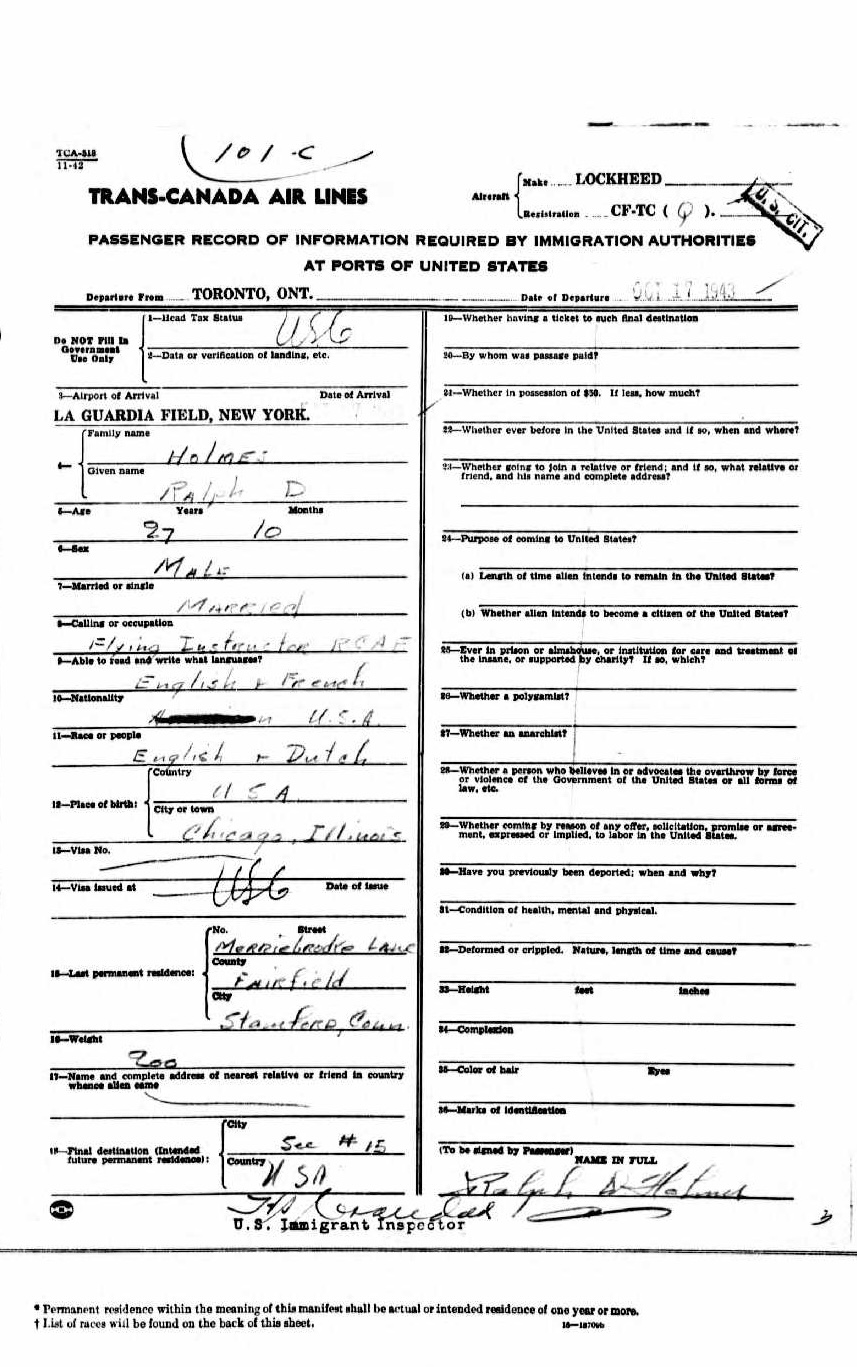 TCA-518
11-42
101-C
TRANS-CANADA AIR LINES
Aircraft Make LOCKHEED
Registration CF-TC ( Q ).
U.S. CIT.
PASSENGER RECORD OF INFORMATION REQUIRED BY IMMIGRATION AUTHORITIES
AT PORTS OF UNITED STATES
Departure From TORONTO, ONT. Date of Departure OCT 17 1943
Do NOT Fill In
Government
Use Only
1—Head Tax Status
USC
2—Data or verification of landing, etc.
3—Airport of Arrival Date of Arrival
LA GUARDIA FIELD, NEW YORK.
4— Family name
HOLMES
Given name
RALPH D
5—Age Years Months
27 10
6—Sex
MALE
7—Married or single
MARRIED
8—Calling or occupation
Flying Instructor RCAF
9—Able to read and write what languages?
English + French
10—Nationality
U.S.A.
11—Race or people
English + Dutch
12—Place of birth: Country
USA
City or town
Chicago, Illinois
13—Visa No.
14—Visa issued at Date of issue
USC
15—Last permanent residence: No. Street
Merriebrooke Lane
County
Fairfield
City
Stamford, Conn.
16—Weight
200
17—Name and complete address of nearest relative or friend in country
whence alien came
18—Final destination (Intended
future permanent residence):
City
See # 15
Country
USA
U.S. Immigrant Inspector
19—Whether having a ticket to such final destination
20—By whom was passage paid?
21—Whether in possession of $50. If less, how much?
22—Whether ever before in the United States and if so, when and where?
23—Whether going to join a relative or friend; and if so, what relative or
friend, and his name and complete address?
24—Purpose of coming to United States?
(a) Length of time alien intends to remain in the United States?
(b) Whether alien intends to become a citizen of the United States?
25—Ever in prison or almshouse, or institution for care and treatment of
the insane, or supported by charity? If so, which?
26—Whether a polygamist?
27—Whether an anarchist?
28—Whether a person who believes in or advocates the overthrow by force
or violence of the Government of the United States or all forms of
law, etc.
29—Whether coming by reason of any offer, solicitation, promise or agree-
ment, expressed or implied, to labor in the United States.
30—Have you previously been deported; when and why?
31—Condition of health, mental and physical.
32—Deformed or crippled. Nature, length of time and cause?
33—Height feet inches
34—Complexion
35—Color of hair Eyes
36—Marks of identification
(To be signed by Passenger)
NAME IN FULL
Ralph D Holmes
3
* Permanent residence within the meaning of this manifest shall be actual or intended residence of one year or more.
† List of races will be found on the back of this sheet.